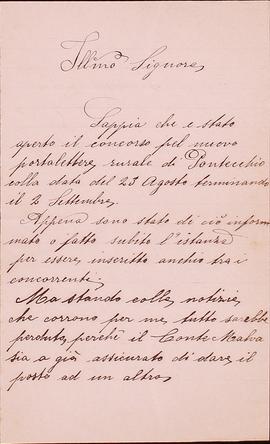 Illmo Signore,
Sappia che è stato
aperto il concorso pel nuovo
portalettere, rurale di Pontecchio
colla data del 23 Agosto terminando
il 2 Settembre.
Appena sono stato di ciò infor
mato o fatto subito l'istanza
per essere inscritto anch'io tra i
concorrenti.
Ma stando colle notizie,
che corrono per me, tutto sarebbe
perduto, perchè il Conte Malva
sia a già assicurato di dare il
posto ad un altro,